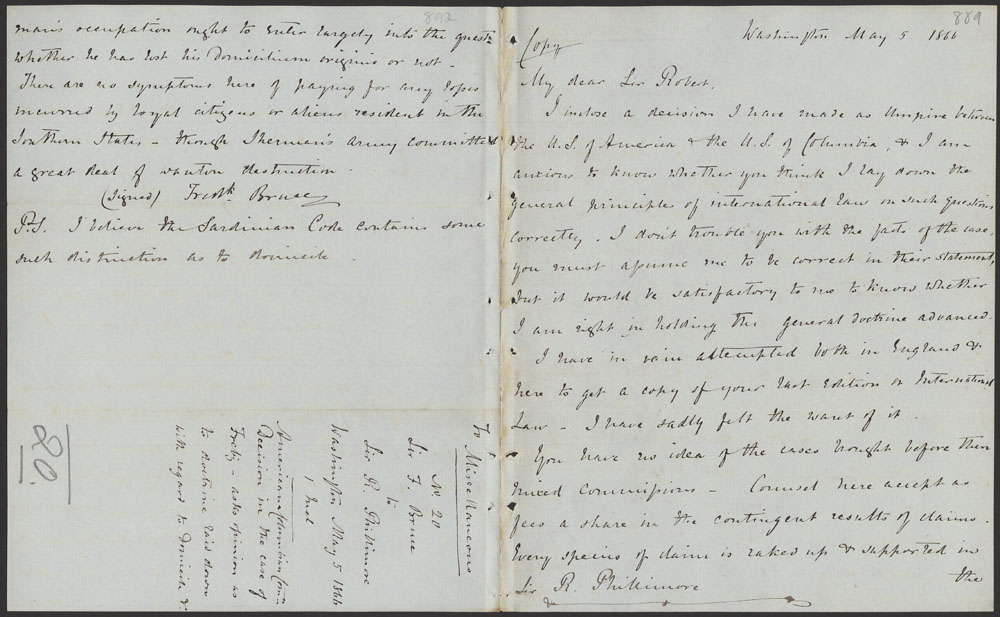 889
Washington May 5 1866
Copy
My dear Sir Robert,
I inclose a decision I have made as Umpire between
the U.S. of America & the U.S. of Columbia, & I am
anxious to know whether you think I lay down the
general principles of international law on such questions
correctly. I don't trouble you with the facts of the case,
you must assume me to be correct in their statement,
but it would be satisfactory to me to know whether
I am right in holding the general doctrine advanced.
I have in vain attempted both in England &
here to get a copy of your last Edition on International
Law - I have sadly felt the want of it.
You have no idea of the cases brought before these
mixed commissions - Counsel here accept as
fees a share in the contingent results of claims.
Every species of claim is raked up & supported in
the
Sir R. Phillimore
892
man's occupation ought to enter largely into the questn
whether he has lost his Domicilium originis or not -
There are no symptoms here of paying for any losses
incurred by loyal citizens or aliens resident in the
Southern States - though Sherman's army committed
a great deal of wanton destruction.
(Signed) Fredk Bruce
P.S. I believe the Sardinian Code contains some
such distinction as to domicile.
To Miscellaneous
No. 20
Sir F. Bruce
to
Sir R. Phillimore
Washington May 5 1866
1 Incl
American & Columbian Comn
Decision in the case of
- asks opinion as
to doctrine laid down
with regard to domicile &c
20.